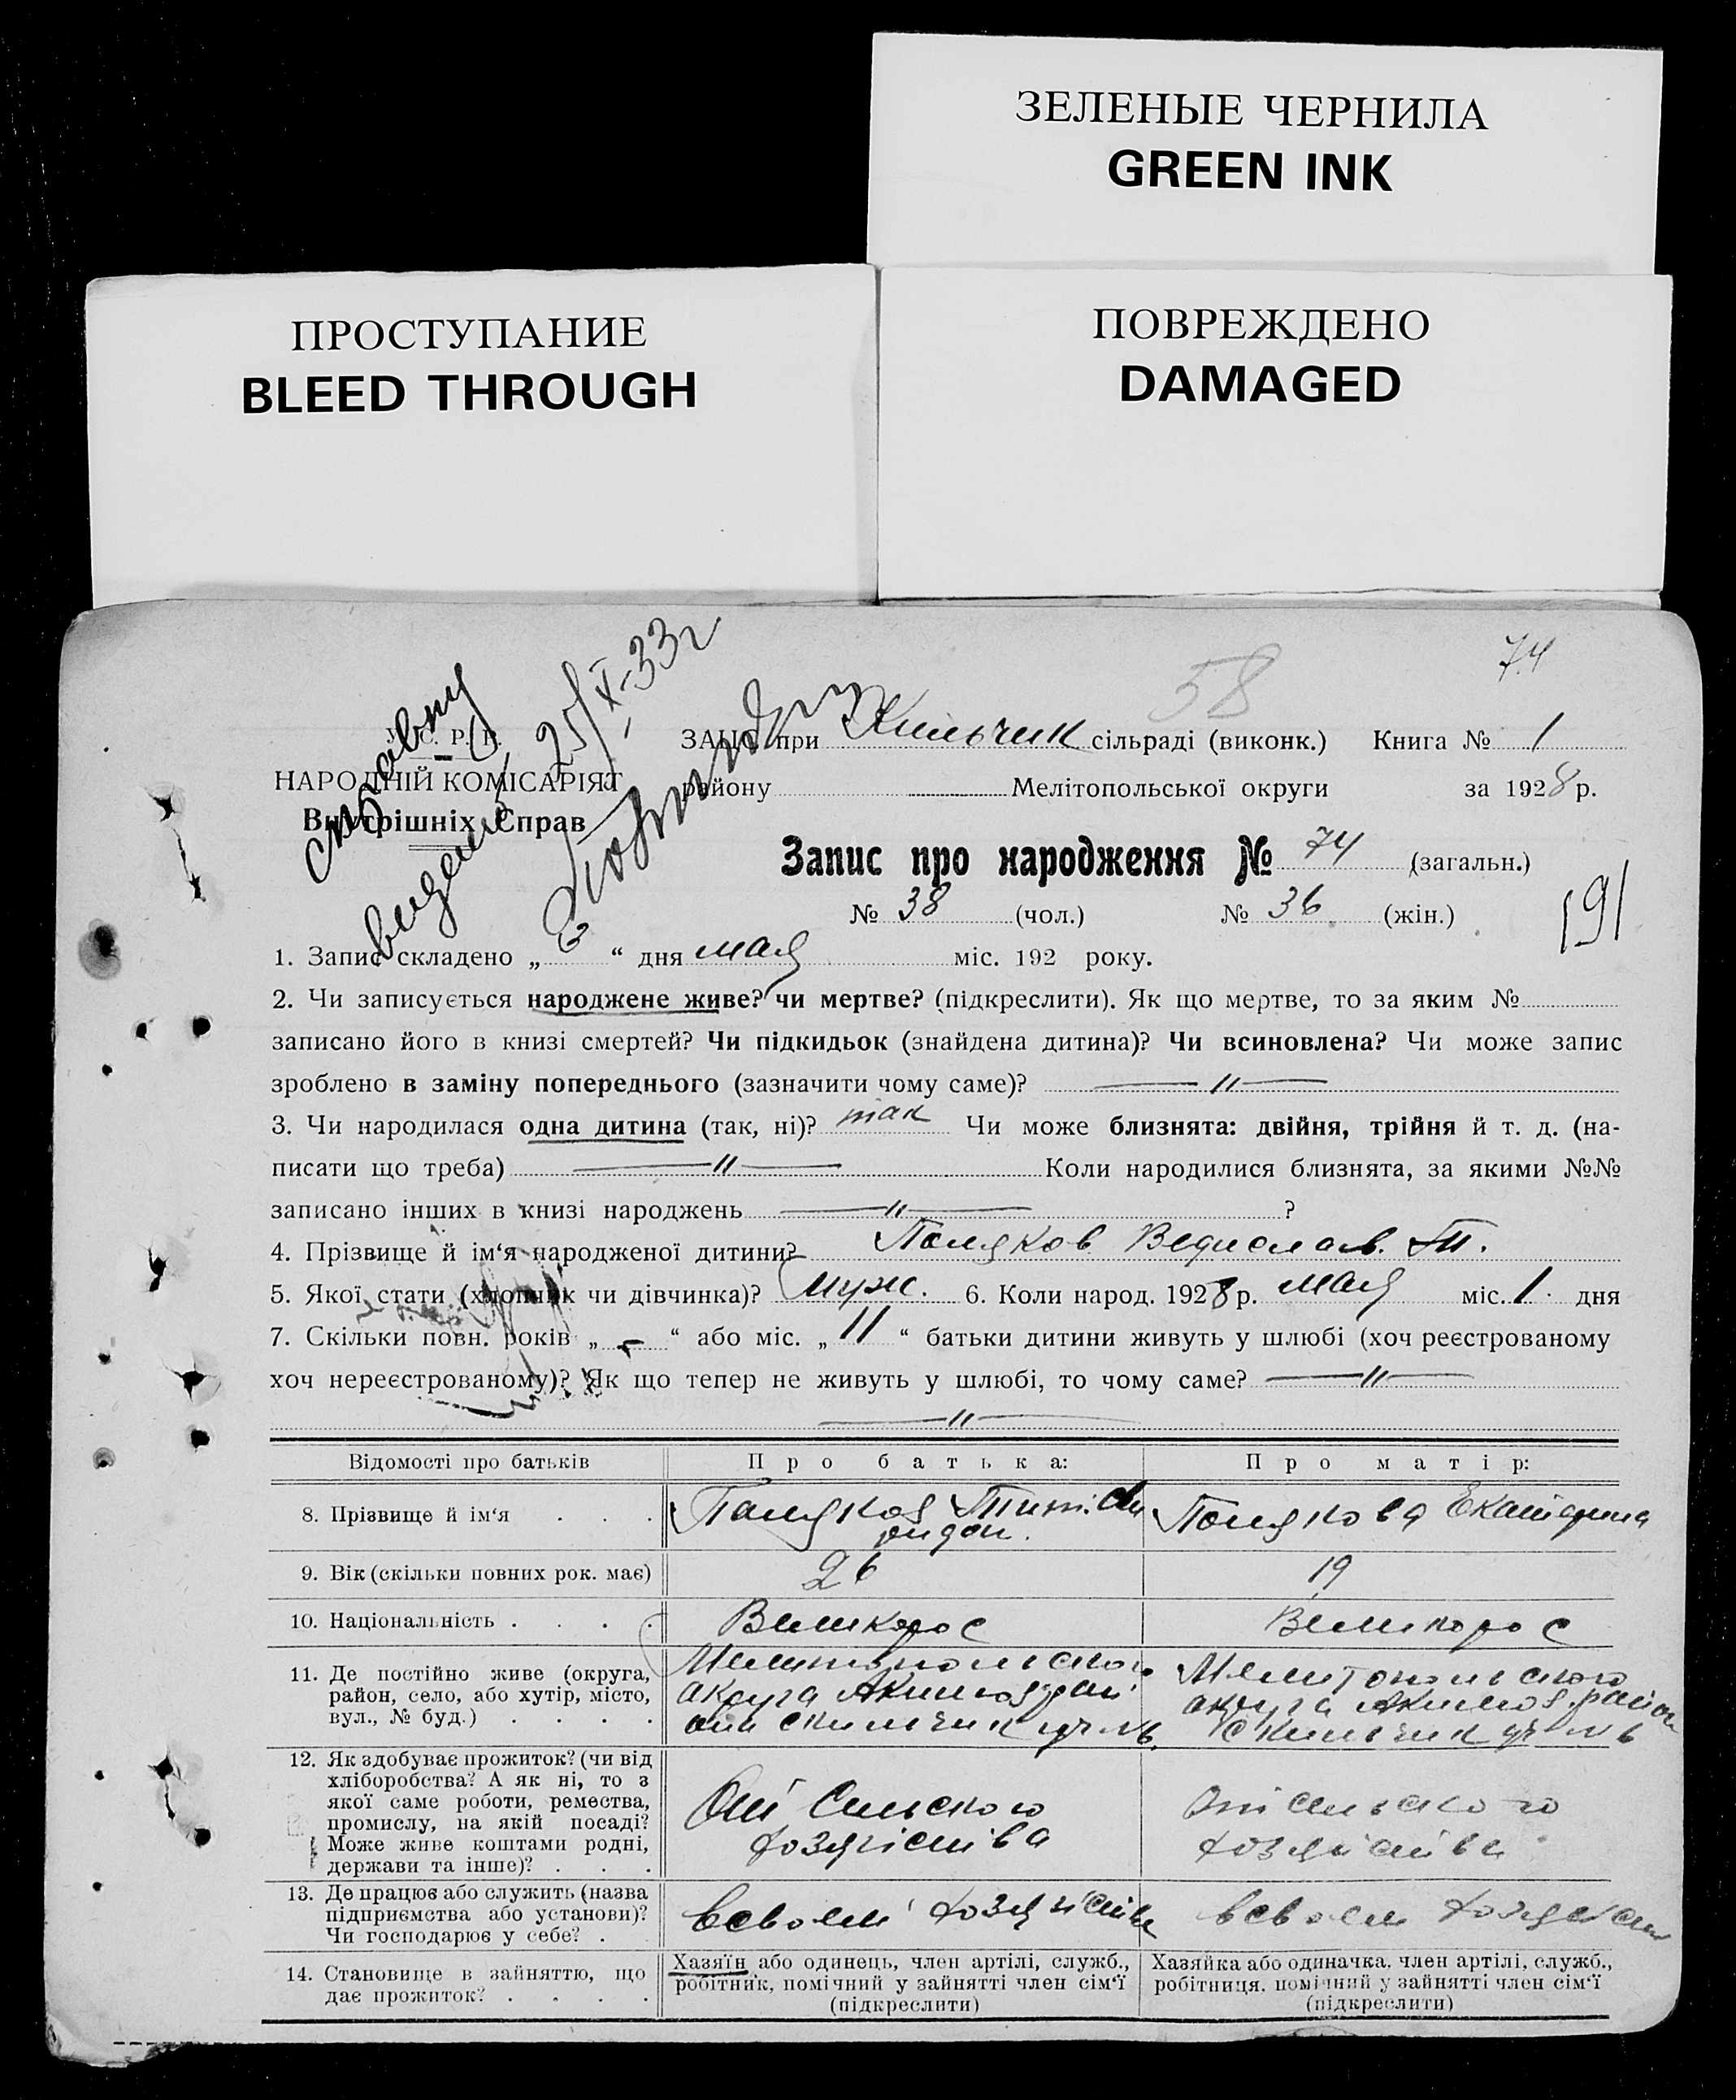 ЗЕЛЕНЫЕ ЧЕРНИЛА
GREEN INK
ПРОСТУПАНИЕ
BLEED THROUGH
ПОВРЕЖДЕНО
DAMAGED
74
58
справку
25/X-33г
У. С. Р. Р.
НАРОДНІЙ КОМІСАРІЯТ
Внутрішніх Справ
ЗАЦС при Кильчик сільраді (виконк.) Книга № 1
району Мелітопольської округи за 1928 р.
Запис про народження № 74 (загальн.)
№ 38 (чол.) № 36 (жін.)
191
1. Запис складено „ “ дня мая міс. 192 року.
2. Чи записується народжене живе? чи мертве? (підкреслити). Як що мертве, то за яким №
записано його в книзі смертей? Чи підкидьок (знайдена дитина)? Чи всиновлена? Чи може запис
зроблено в заміну попереднього (зазначити чому саме)? —〃—
3. Чи народилася одна дитина (так, ні)? так Чи може близнята: двійня, трійня й т. д. (на-
писати що треба) —〃— Коли народилися близнята, за якими №№
записано інших в книзі народжень —〃— ?
4. Прізвище й ім‘я народженої дитини? Поляков Т.
5. Якої стати (хлопчик чи дівчинка)? муж. 6. Коли народ. 1928 р. мая міс. 1 дня
7. Скільки повн. років „ – “ або міс. „ 11 “ батьки дитини живуть у шлюбі (хоч реєстрованому
хоч нереєстрованому)? Як що тепер не живуть у шлюбі, то чому саме? —〃—
—〃—
Відомості про батьків Про батька: Про матір:
8. Прізвище й ім‘я Поляков Полякова Екатерина
9. Вік (скільки повних рок. має) 26 19
10. Національність Великорос Великорос
11. Де постійно живе (округа,
район, село, або хутір, місто,
вул., № буд.)
Мелитопольского
округа Акимов. рай
Мелитопольского
округа Акимов. район
12. Як здобуває прожиток? (чи від
хліборобства? А як ні, то з
якої саме роботи, ремества,
промислу, на якій посаді?
Може живе коштами родні,
держави та інше)?
От Сильского
хозяіства
От сильского
хозяіства
13. Де працює або служить (назва
підприємства або установи)?
Чи господарює у себе?
Всвоем хозяіств
всвоем хозяіст
14. Становище в зайняттю, що
дає прожиток?
Хазяїн або одинець, член артілі, служб.,
робітник, помічний у зайнятті член сім‘ї
(підкреслити)
Хазяйка або одиначка, член артілі, служб.,
робітниця, помічний у зайнятті член сім‘ї
(підкреслити)